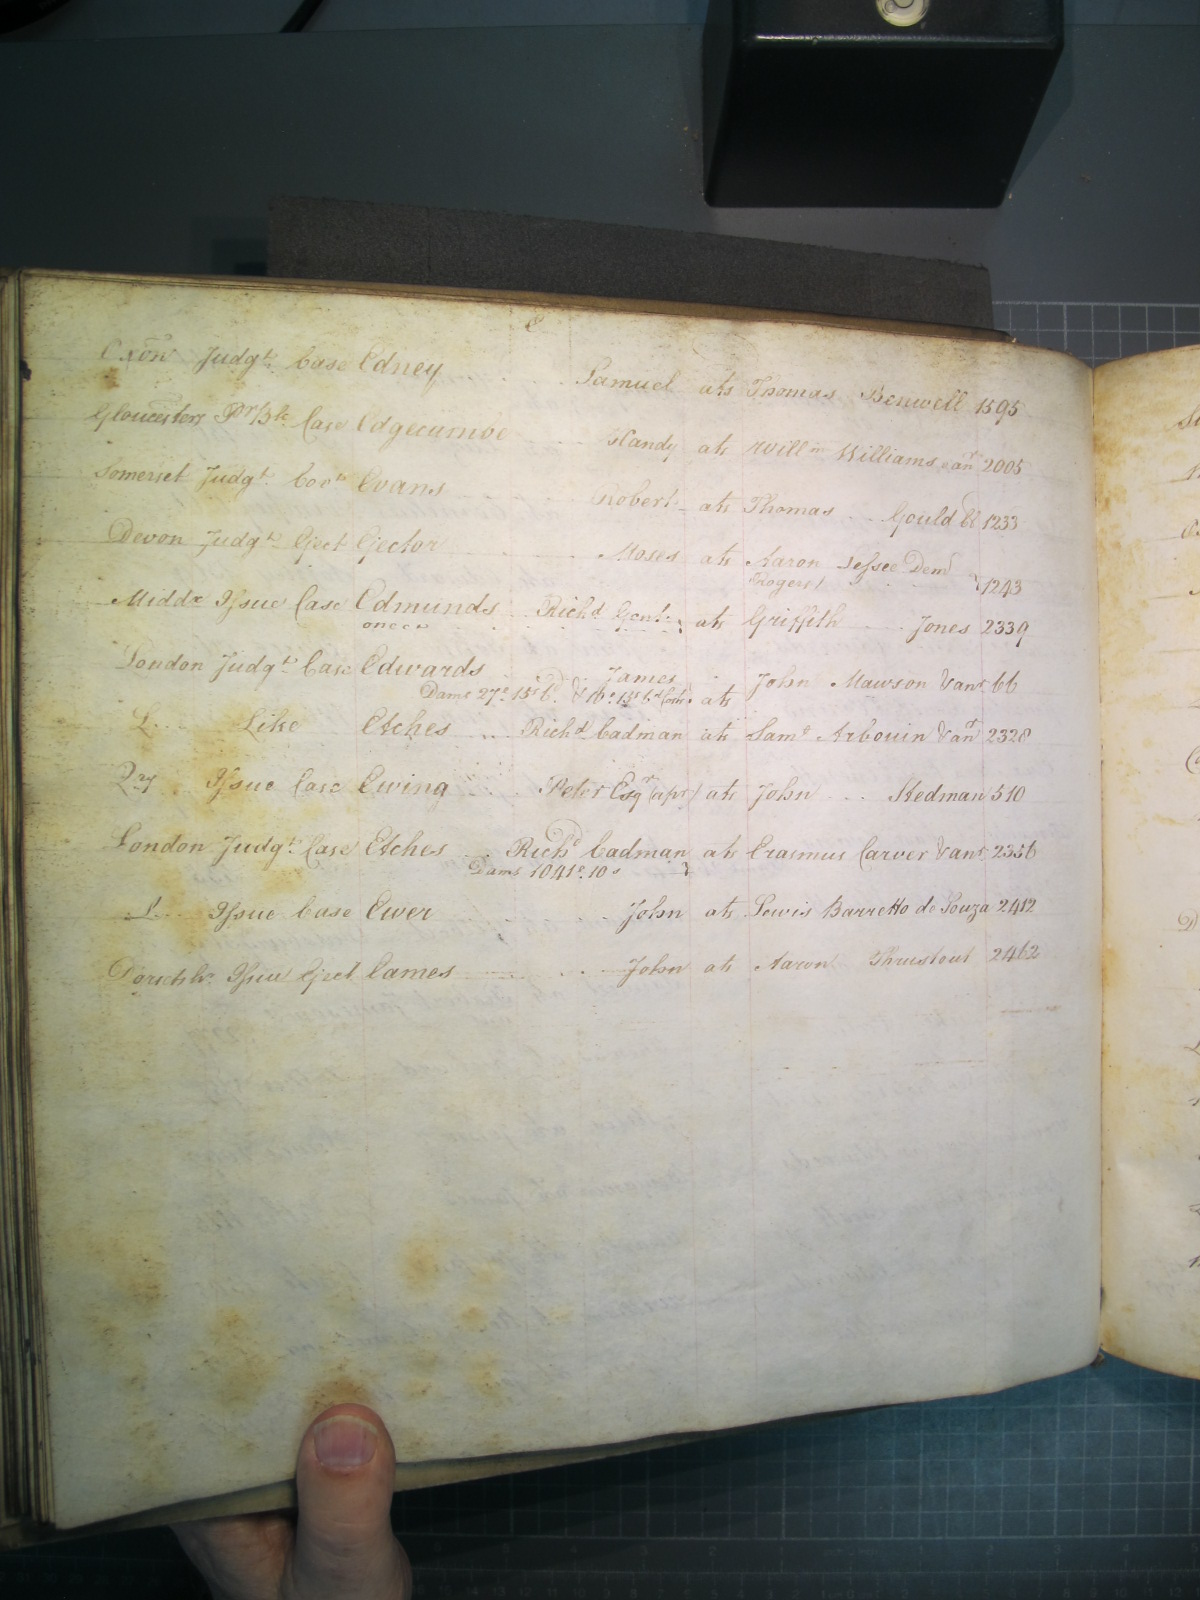 E
Oxon Judgt. Case Edney Samuel ats Thomas Benwell 1595
Gloucester Case Edgecumbe Handy ats Willm Williams & anr 2005
Somerset Judgt. Covt Evans Robert ats Thomas Gould 1233
Devon Judgt. Eject Ejector Moses ats Aaron Lessee Demd
Rogers 1243
Middx Issue Case Edmunds Richd Gent. ats Griffith Jones 2339
one &c
London Judgt. Case Edwards James John Mawson & anr 66
Dams 27£ 15s 6. & ats
L. Like Etches Richd Cadman ats Saml Arbouin & anr 2328
Issue Case Ewing Peter Esqr ats John Stedman 510
London Judgt. Case Etches Richd Cadman ats Erasmus Carver & anr 2356
Dams 1041£. 10s
L. Issue Case Ewer John ats Lewis Barretto de Souza 2412
Issue Eject Eames John ats Aaron Thrustout 2462